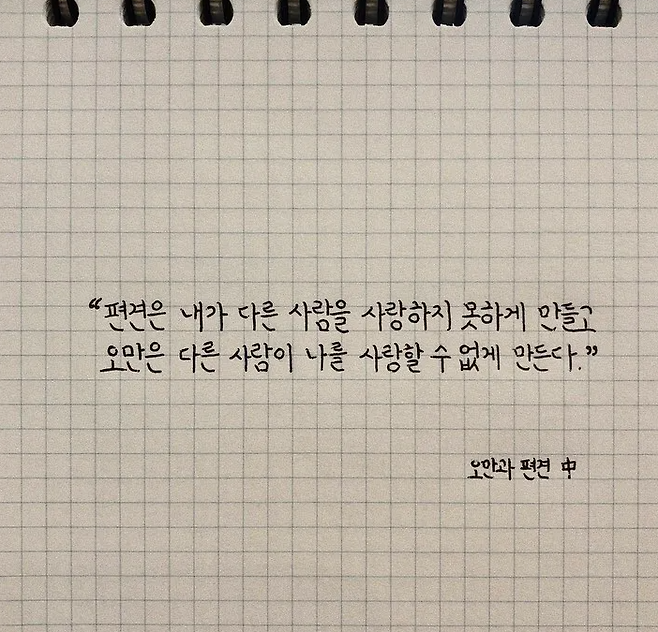 “편견은 내가 다른 사람을 사랑하지 못하게 만들고
오만은 다른 사람이 나를 사랑할 수 없게 만든다.”
오만과 편견 中